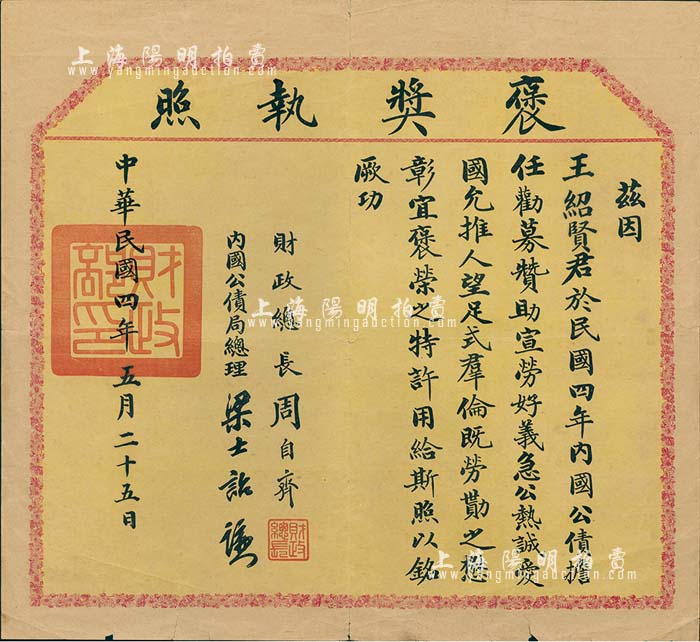 褒獎執照
茲因
王紹賢君於民國四年內國公債擔
任勸募贊助宣勞好義急公熱誠愛
國允推人望足式羣倫既勞勩之
彰宜褒榮之特許用給斯照以銘
厥功
財政總長周自齊
財政總長
內國公債局總理 梁士詒
中華民國四年五月二十五日
財政部印
上海陽明拍賣
www.yangmingauction.com
上海陽明拍賣
www.yangmingauction.com
上海陽明拍賣
www.yangmingauction.com